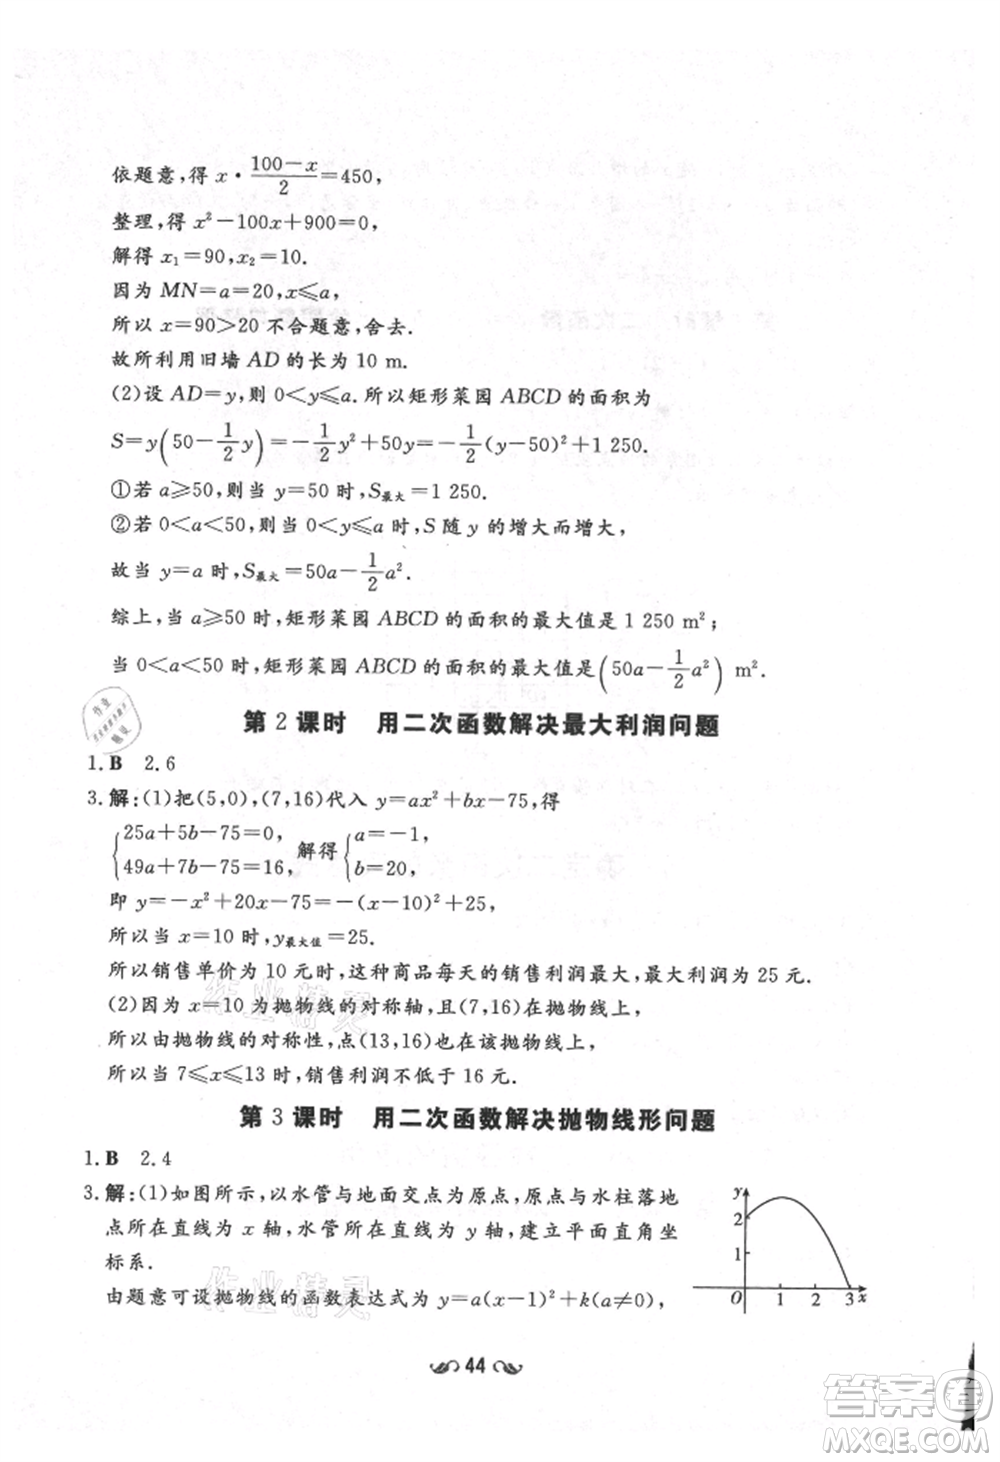 依题意,得 x·(100-x)/2=450,
整理,得 x²-100x+900=0,
解得 x₁=90,x₂=10.
因为 MN=a=20,x≤a,
所以 x=90>20 不合题意,舍去.
故所利用旧墙 AD 的长为 10 m.
(2)设 AD=y,则 0<y≤a.所以矩形菜园 ABCD 的面积为
S=y(50-1/2y)=-1/2y²+50y=-1/2(y-50)²+1 250.
①若 a≥50,则当 y=50 时,S最大=1 250.
②若 0<a<50,则当 0<y≤a 时,S 随 y 的增大而增大,
故当 y=a 时,S最大=50a-1/2a².
综上,当 a≥50 时,矩形菜园 ABCD 的面积的最大值是 1 250 m²;
当 0<a<50 时,矩形菜园 ABCD 的面积的最大值是(50a-1/2a²) m².
第 2 课时 用二次函数解决最大利润问题
1.B 2.6
3.解:(1)把(5,0),(7,16)代入 y=ax²+bx-75,得
{25a+5b-75=0, 49a+7b-75=16, 解得{a=-1, b=20,
即 y=-x²+20x-75=-(x-10)²+25,
所以当 x=10 时,y最大值=25.
所以销售单价为 10 元时,这种商品每天的销售利润最大,最大为 25 元.
(2)因为 x=10 为抛物线的对称轴,且(7,16)在抛物线上,
所以由抛物线的对称性,点(13,16)也在该抛物线上,
所以当 7≤x≤13 时,销售利润不低于 16 元.
第 3 课时 用二次函数解决抛物线形问题
1.B 2.4
3.解:(1)如图所示,以水管与地面交点为原点,原点与水柱落地
点所在直线为 x 轴,水管所在直线为 y 轴,建立平面直角坐
标系.
由题意可设抛物线的函数表达式为 y=a(x-1)²+k(a≠0),
y
2
1
O 1 2 3 x
44
作业精灵
作业精灵
答案圈
MXQE.COM